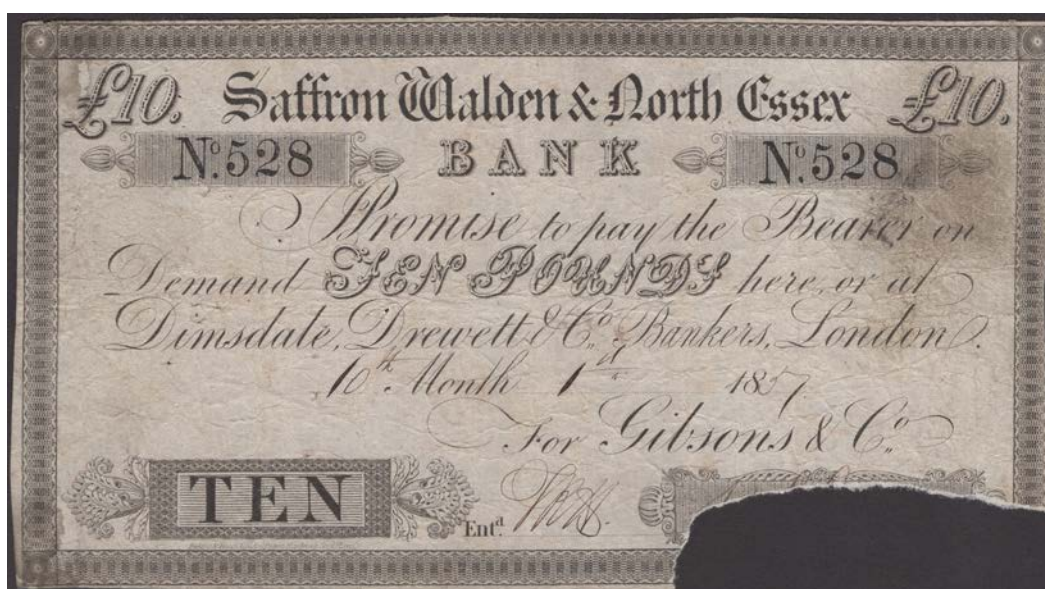 £10. Saffron Walden & North Essex £10.
No.528 BANK No.528
Promise to pay the Bearer on
Demand TEN POUNDS here, or at
Dimsdale, Drewett & Co. Bankers, London.
10th Month 1st 1857
For Gibsons & Co.
TEN
Entd.